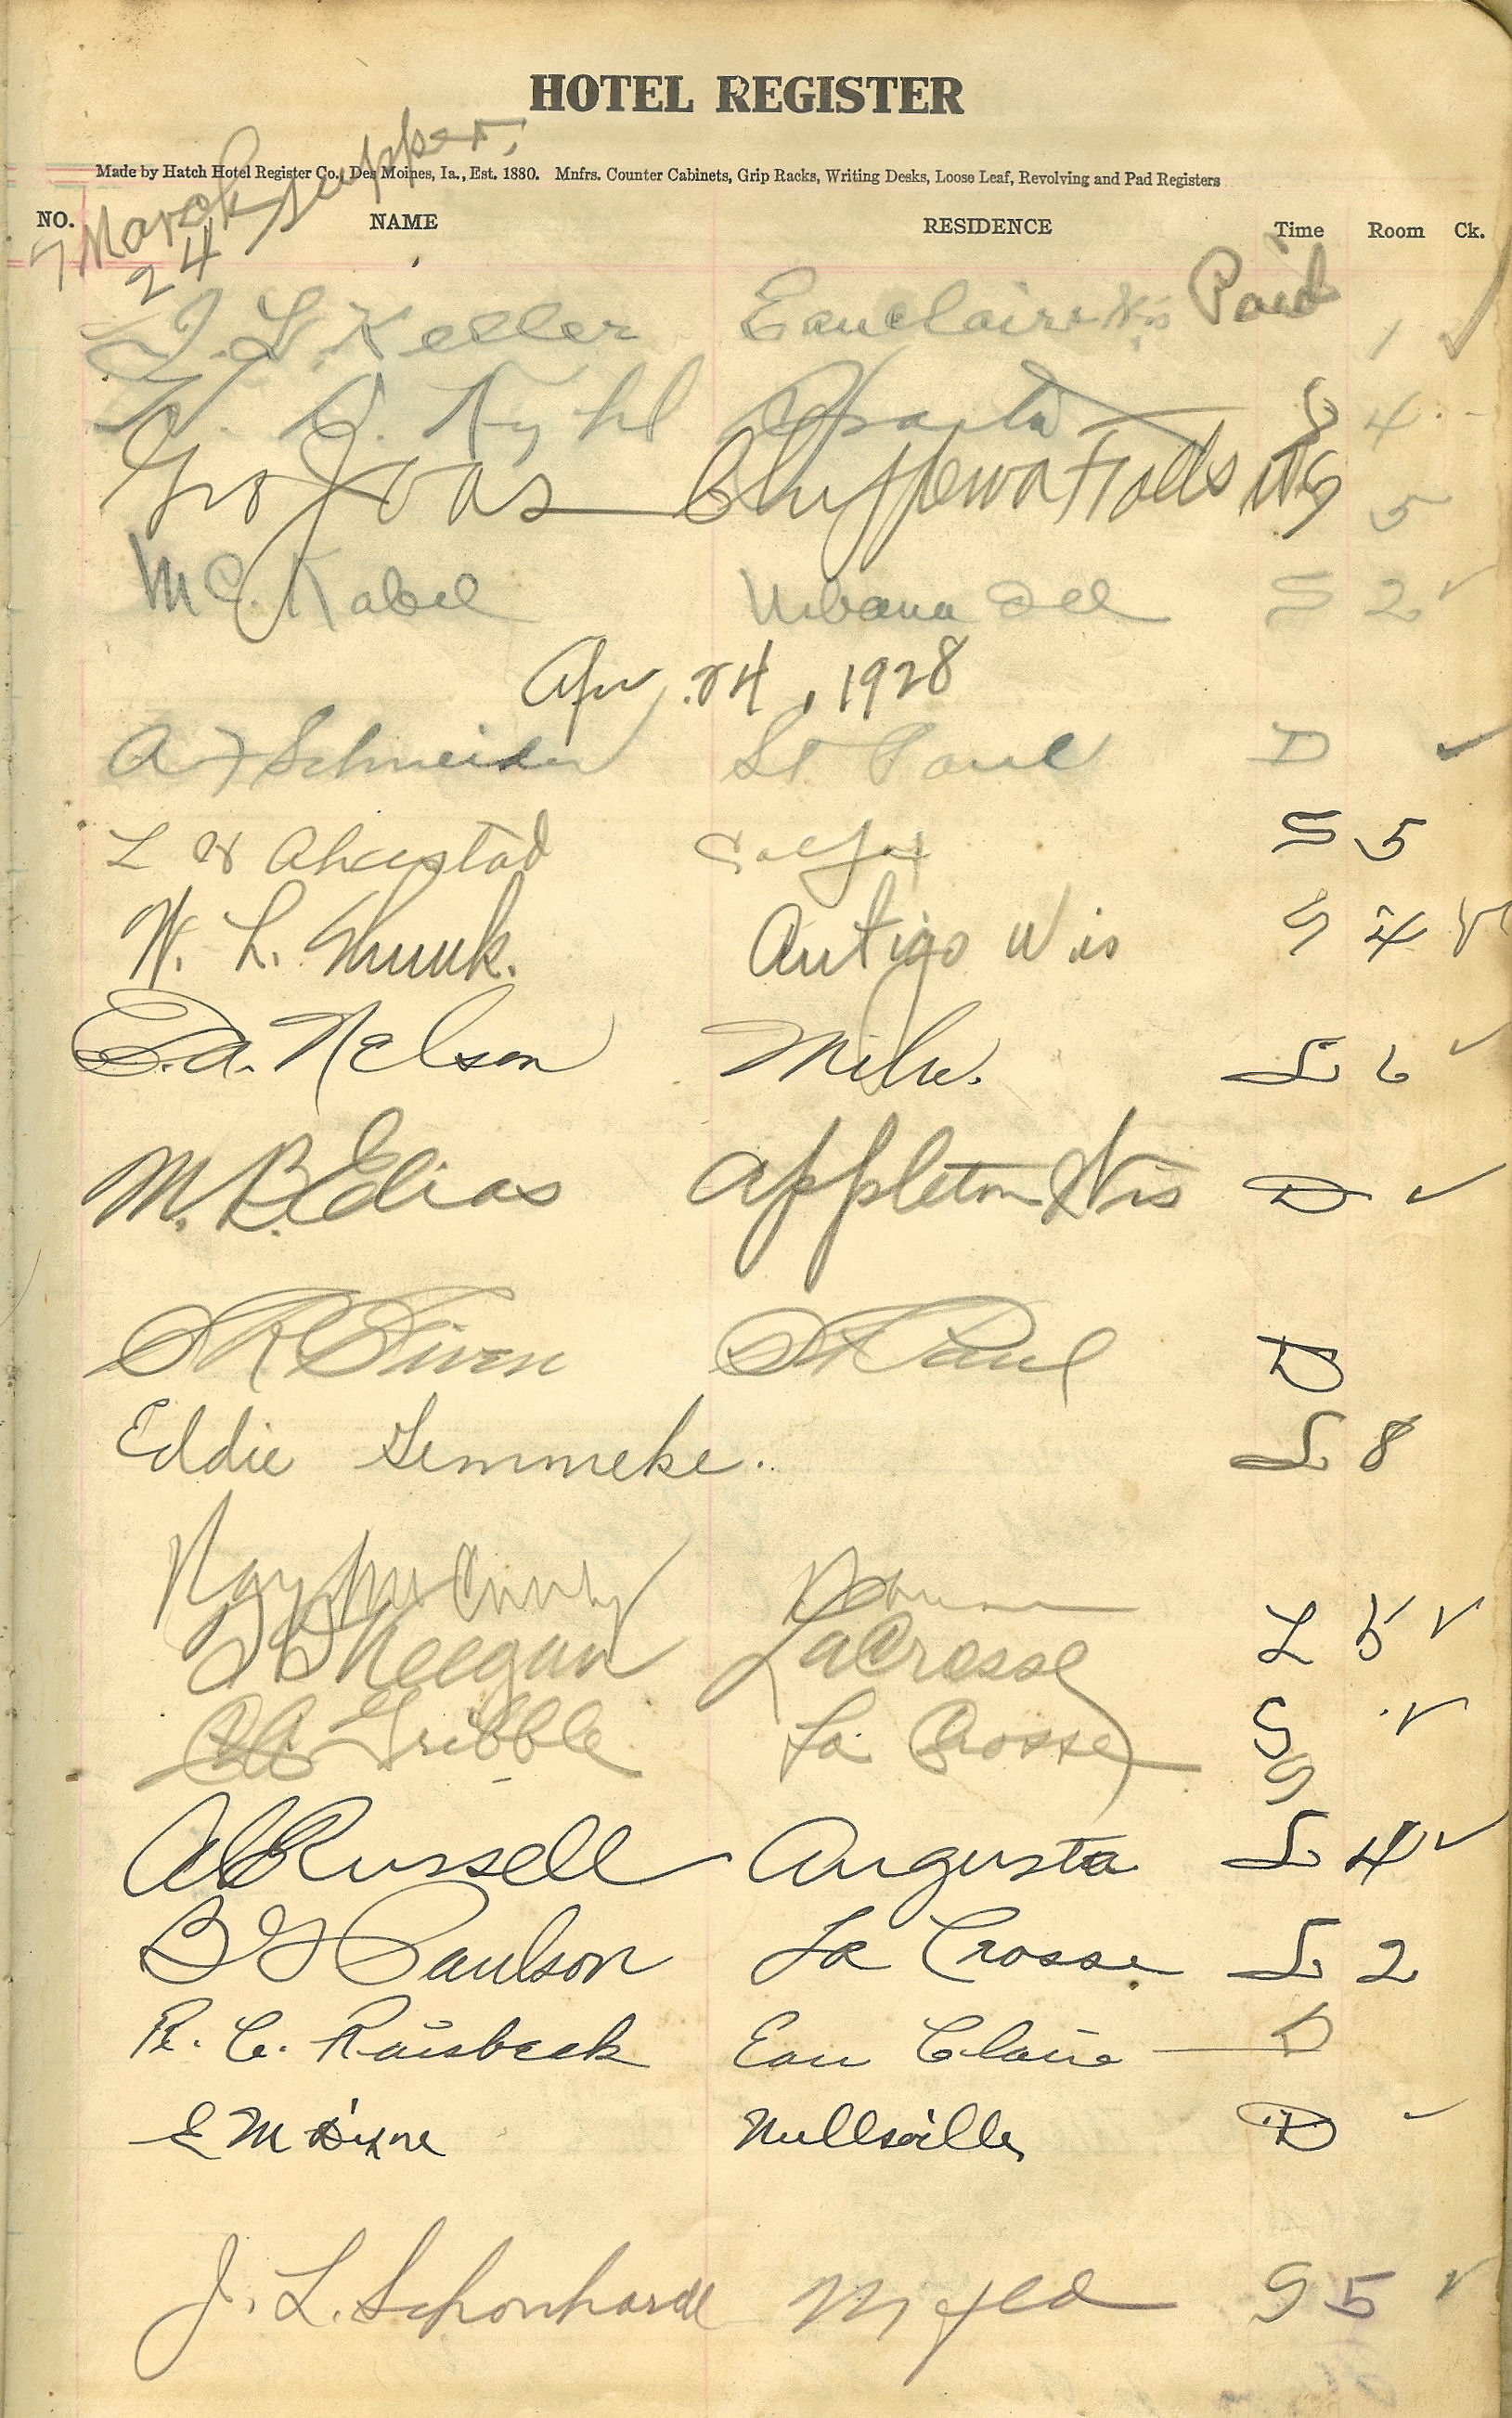 HOTEL REGISTER
Made by Hatch Hotel Register Co., Des Moines, Ia., Est. 1880. Mnfrs. Counter Cabinets, Grip Racks, Writing Desks, Loose Leaf, Revolving and Pad Registers
NO. NAME RESIDENCE Time Room Ck.
7 March supper.
24
J. L. Keller Eauclaire Wis Paid 1 ✓
Kyhl Sparta S 4
Geo Joas Chippewa Falls Wis S 5
Mc. Kabel Urbana Ill S 2 ✓
Apr. 24, 1928
A F Schneider St Paul D ✓
L Colfax S 5
W. L. Antigo Wis S 4 ✓
E.A. Nelson Milw. L 6 ✓
M. B. Elias Appleton Wis D ✓
St Paul D
Eddie Semmeke. L 8
Ray
Keegan LaCrosse L 5 ✓
Gribble La Crosse S ✓
S
Russell Augusta L 4 ✓
B G Paulson La Crosse L 2
R. C. Raisbeck Eau Claire D
E M Neillsville D
J. L. Schonhardt Mfld S 5 ✓